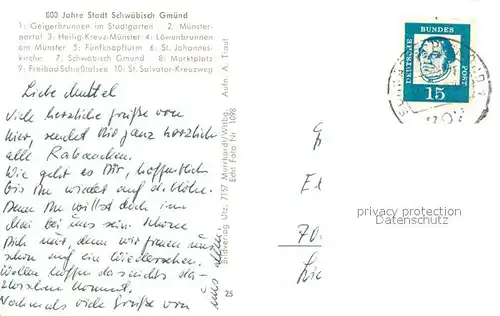 800 Jahre Stadt Schwäbisch Gmünd
1: Geigerbrunnen im Stadtgarten 2: Münster-
portal 3: Heilig-Kreuz-Münster 4: Löwenbrunnen
am Münster 5: Fünfknopfturm 6: St. Johannes-
kirche 7: Schwäbisch Gmünd 8: Marktplatz
9: Freibad Schießtalsee 10: St. Salvator-Kreuzweg
Liebe Muttel
Viele herzliche Grüße von
hier, sendet Dir ganz herzlich
alle
Wie geht es Dir, hoffentlich
bis Du wieder auf d. Höhe.
Denn Du willst doch im
Mai bei uns sein. Schone
Dich nur, denn wir freuen uns
schon auf ein Wiedersehen.
Wollen hoffen das nichts da-
zwischen kommt.
Nochmals viele Grüße von
uns allen.
Bildverlag Utz, 7157 Murrhardt/Wttbg.
Echt Foto Nr. 1098
Aufn. A. Traut
25
DEUTSCHE BUNDESPOST
15
70
privacy protection
Datenschutz